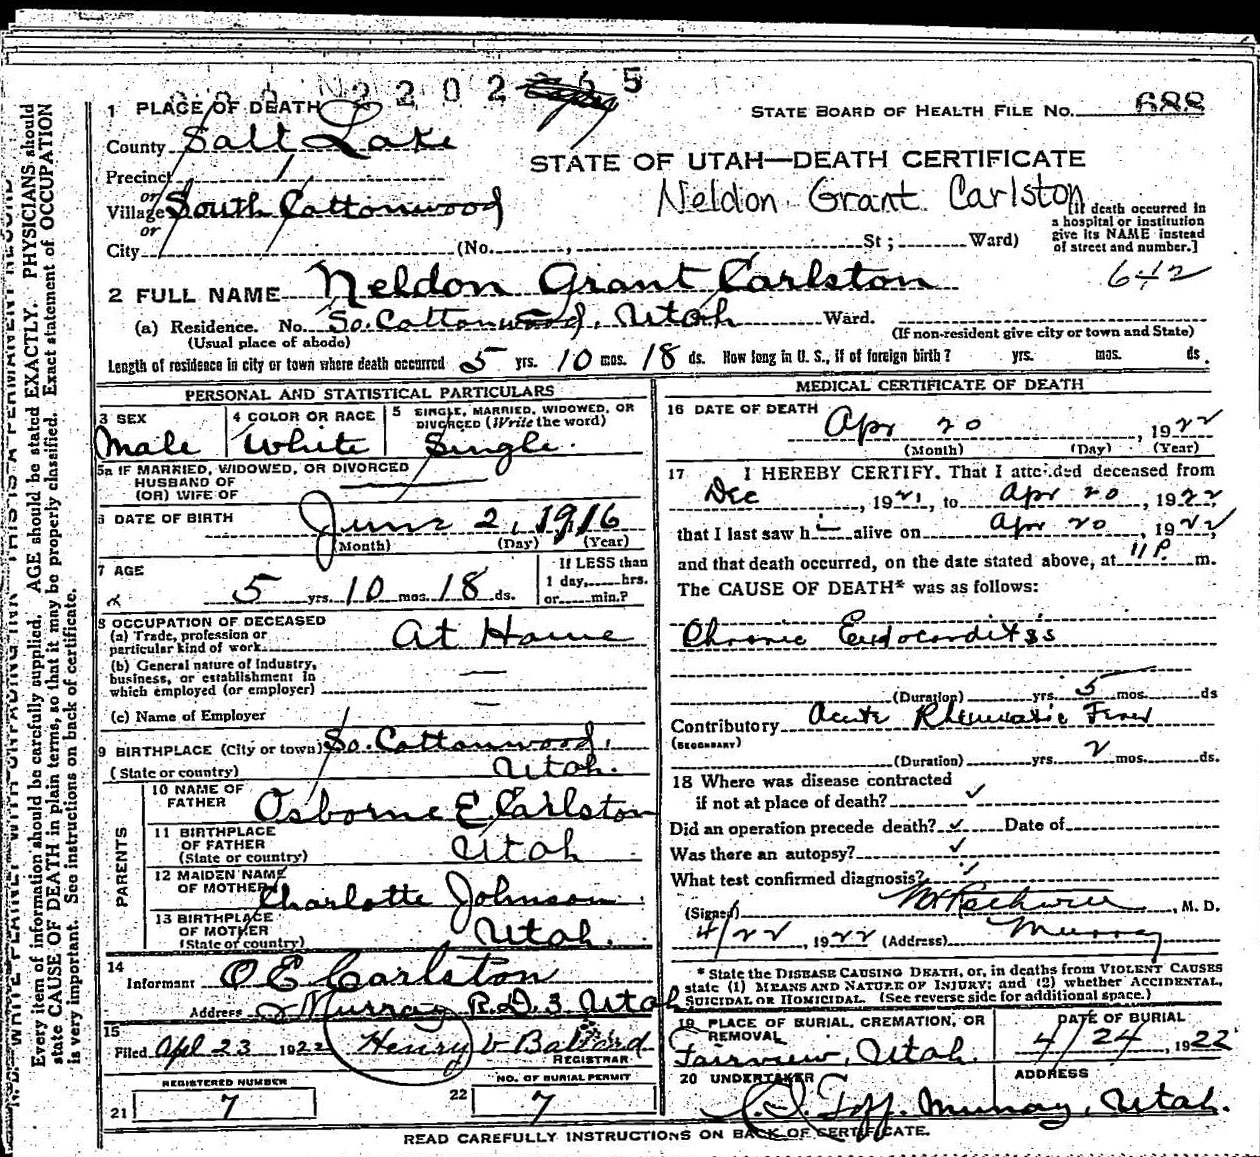 2202 65
1 PLACE OF DEATH
STATE BOARD OF HEALTH FILE NO. 688
County Salt Lake
STATE OF UTAH—DEATH CERTIFICATE
Precinct 1
or
Neldon Grant Carlston
Village South Cottonwood
or
[If death occurred in
a hospital or institution
give its NAME instead
of street and number.]
City (No. , St ; Ward)
642
2 FULL NAME Neldon Grant Carlston
(a) Residence. No. So. Cottonwood, Utah Ward.
(Usual place of abode) (If non-resident give city or town and State)
Length of residence in city or town where death occurred 5 yrs. 10 mos. 18 ds. How long in U. S., if of foreign birth? yrs. mos. ds.
PERSONAL AND STATISTICAL PARTICULARS
3 SEX
Male
4 COLOR OR RACE
White
5 SINGLE, MARRIED, WIDOWED, OR
DIVORCED (Write the word)
Single.
5a IF MARRIED, WIDOWED, OR DIVORCED
HUSBAND OF
(OR) WIFE OF
6 DATE OF BIRTH June 2, 1916
(Month) (Day) (Year)
7 AGE
5 yrs. 10 mos. 18 ds.
If LESS than
1 day, hrs.
or min.?
8 OCCUPATION OF DECEASED
(a) Trade, profession or
particular kind of work At Home
(b) General nature of Industry,
business, or establishment in
which employed (or employer)
(c) Name of Employer
9 BIRTHPLACE (City or town) So. Cottonwood,
(State or country) Utah.
PARENTS
10 NAME OF
FATHER Osborne E Carlston
11 BIRTHPLACE
OF FATHER
(State or country) Utah
12 MAIDEN NAME
OF MOTHER Charlotte Johnson
13 BIRTHPLACE
OF MOTHER
(State or country) Utah.
14
Informant O E Carlston
Address Murray R.D. 3 Utah
15
Filed Apl 23 1922 Henry Ballard
REGISTRAR
REGISTERED NUMBER
21 7
NO. OF BURIAL PERMIT
22 7
MEDICAL CERTIFICATE OF DEATH
16 DATE OF DEATH
Apr 20, 1922
(Month) (Day) (Year)
17 I HEREBY CERTIFY, That I attended deceased from
Dec, 1921, to Apr 20, 1922,
that I last saw hi alive on Apr 20, 1922,
and that death occurred, on the date stated above, at 11 P. m.
The CAUSE OF DEATH* was as follows:
Chronic Endocarditis
(Duration) yrs. 5 mos. ds
Contributory Acute Rheumatic Fever
(SECONDARY)
(Duration) yrs. 2 mos. ds.
18 Where was disease contracted
if not at place of death? ✓
Did an operation precede death? ✓ Date of
Was there an autopsy? ✓
What test confirmed diagnosis?
(Signed) , M. D.
4/22, 1922 (Address) Murray
* State the DISEASE CAUSING DEATH, or, in deaths from VIOLENT CAUSES
state (1) MEANS AND NATURE OF INJURY; and (2) whether ACCIDENTAL,
SUICIDAL OR HOMICIDAL. (See reverse side for additional space.)
19 PLACE OF BURIAL, CREMATION, OR
REMOVAL
Fairview, Utah.
DATE OF BURIAL
4/24, 1922
20 UNDERTAKER
ADDRESS
Goff. Murray, Utah.
READ CAREFULLY INSTRUCTIONS ON BACK OF CERTIFICATE.
Every item of information should be carefully supplied. AGE should be stated EXACTLY. PHYSICIANS should
state CAUSE OF DEATH in plain terms, so that it may be properly classified. Exact statement of OCCUPATION
is very important. See instructions on back of certificate.